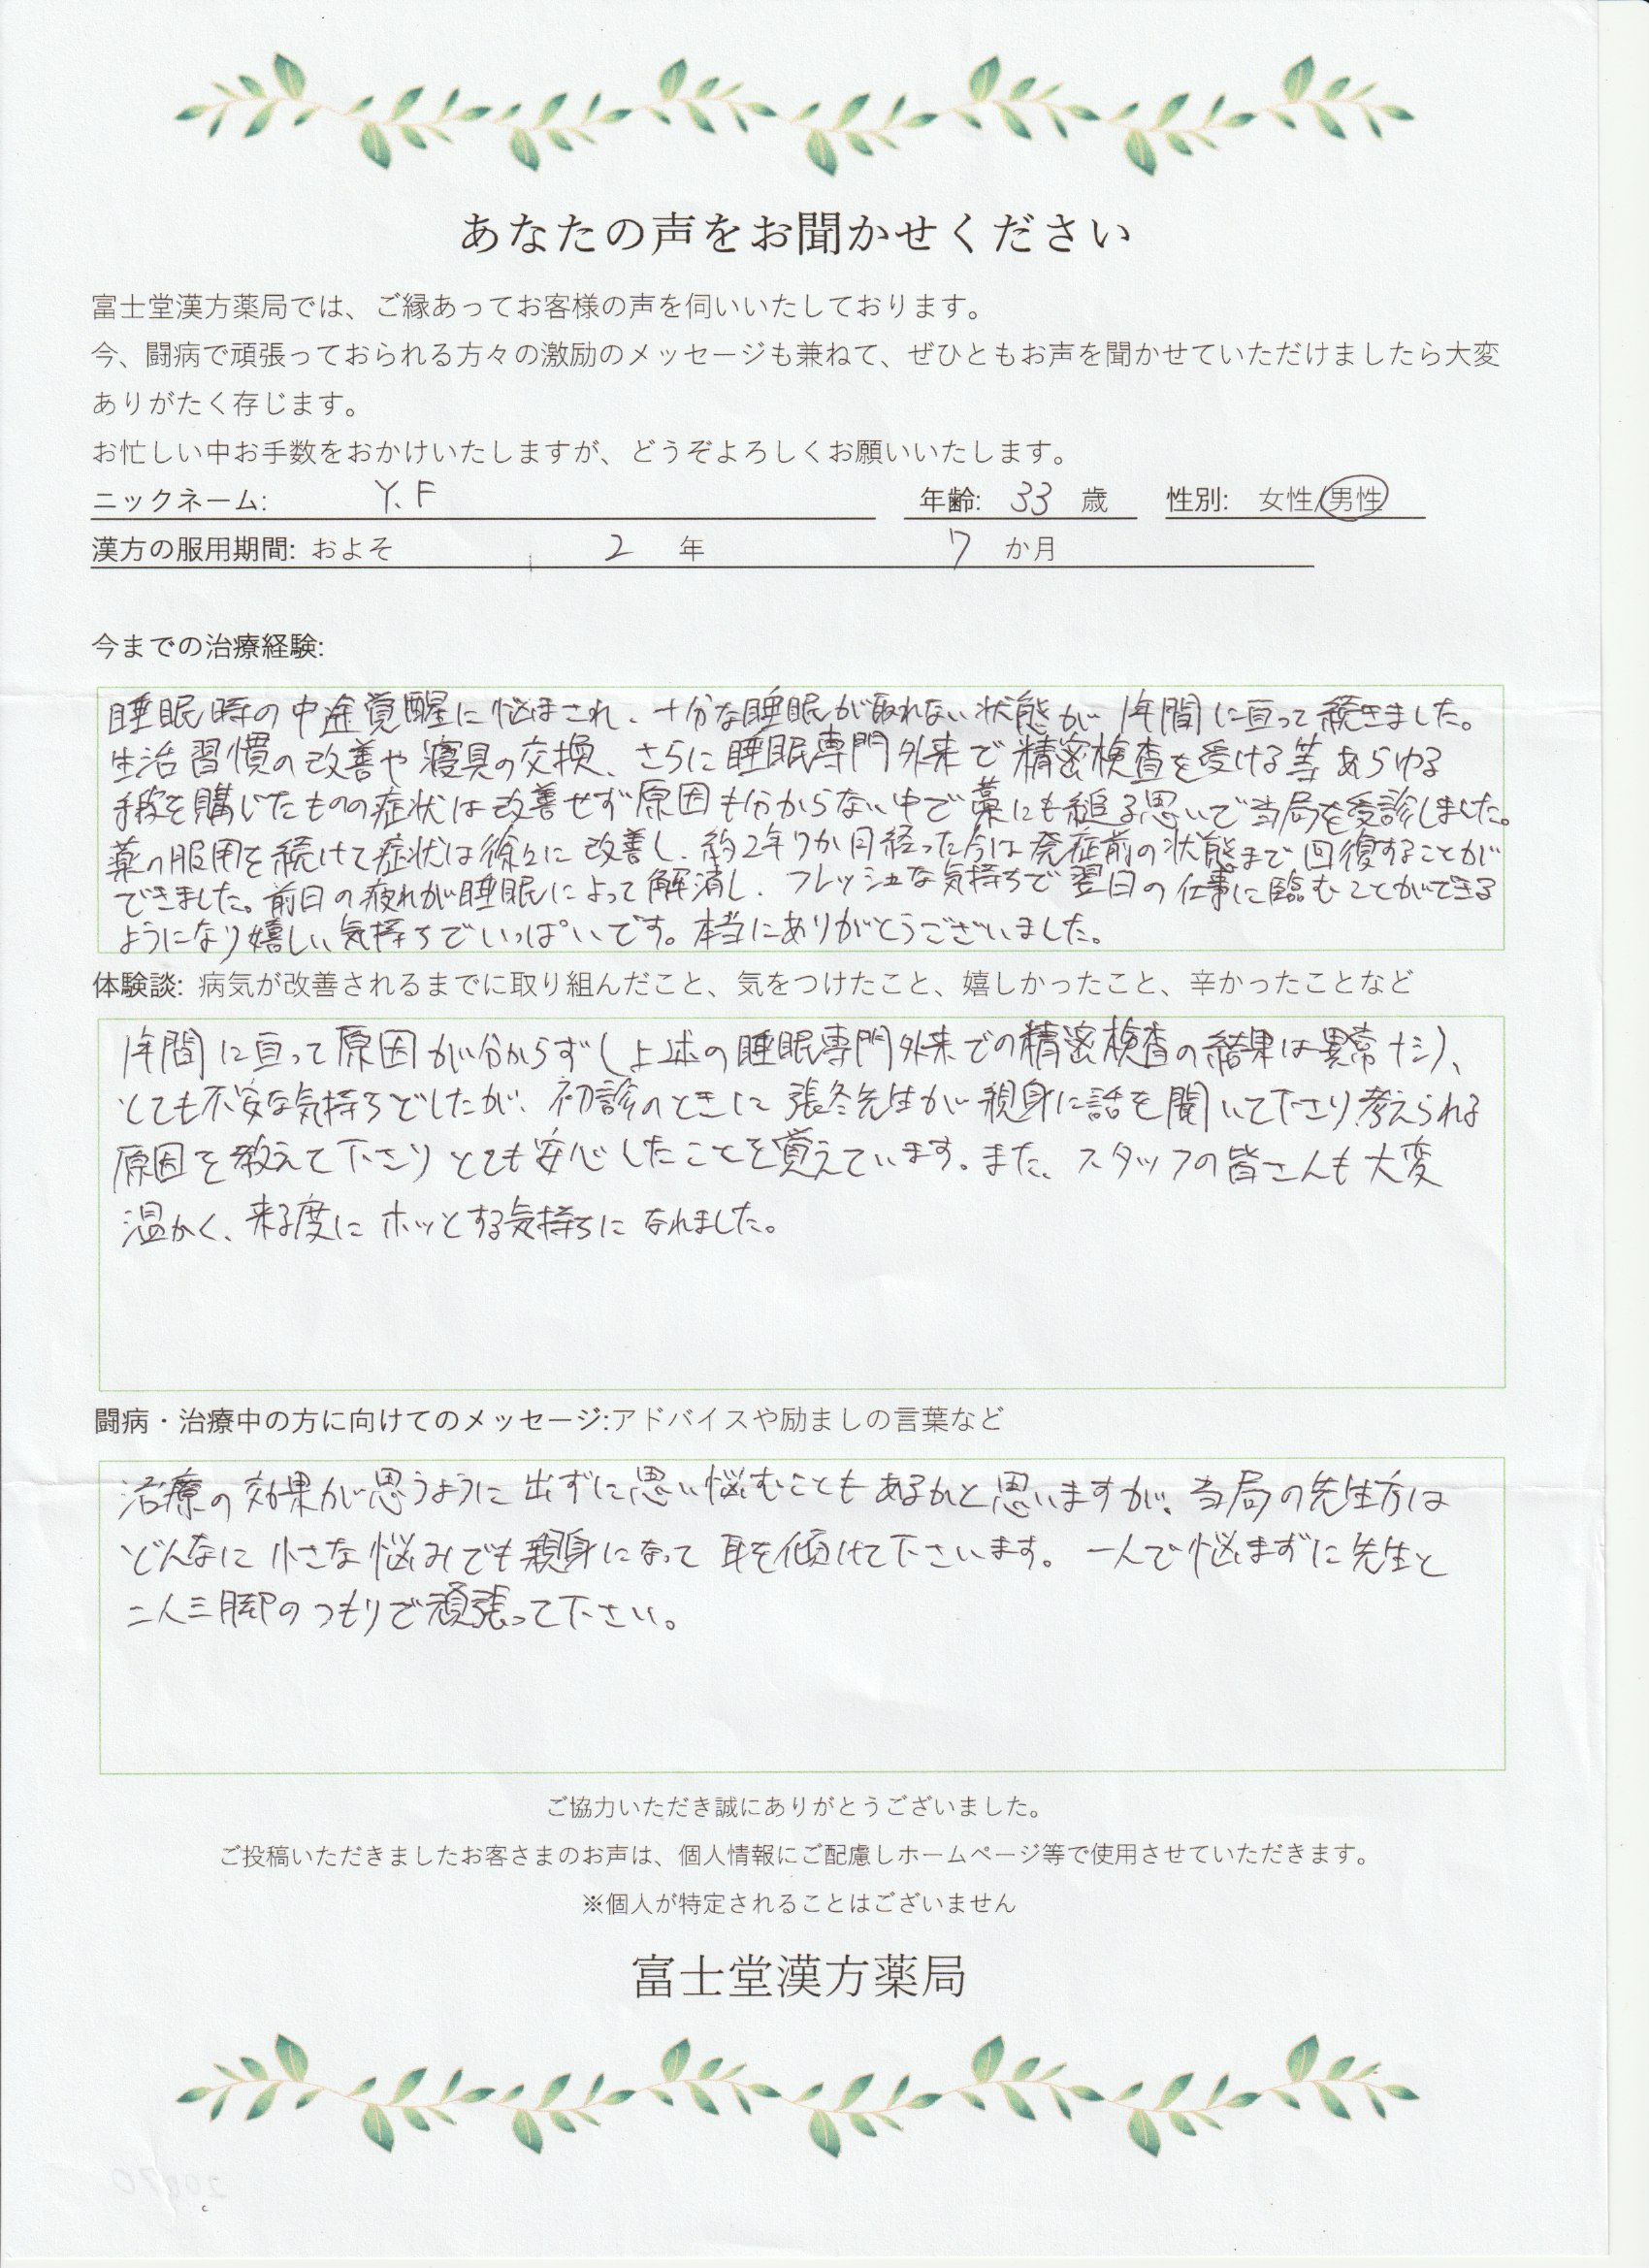 あなたの声をお聞かせください
富士堂漢方薬局では、ご縁あってお客様の声を伺いいたしております。
今、闘病で頑張っておられる方々の激励のメッセージも兼ねて、ぜひともお声を聞かせていただけましたら大変
ありがたく存じます。
お忙しい中お手数をおかけいたしますが、どうぞよろしくお願いいたします。
ニックネーム: Y.F 年齢: 33 歳 性別: 女性/男性
漢方の服用期間: およそ 2 年 7 か月
今までの治療経験:
睡眠時の中途覚醒に悩まされ、十分な睡眠が取れない状態が1年間に亘って続きました。
生活習慣の改善や寝具の交換、さらに睡眠専門外来で精密検査を受ける等あらゆる
手段を購じたものの症状は改善せず原因も分からない中で藁にも縋る思いで当局を受診しました。
薬の服用を続けて症状は徐々に改善し、約2年7か月経った今は発症前の状態まで回復することが
できました。前日の疲れが睡眠によって解消し、フレッシュな気持ちで翌日の仕事に臨むことができる
ようになり嬉しい気持ちでいっぱいです。本当にありがとうございました。
体験談: 病気が改善されるまでに取り組んだこと、気をつけたこと、嬉しかったこと、辛かったことなど
1年間に亘って原因が分からず(上述の睡眠専門外来での精密検査の結果は異常ナシ)、
とても不安な気持ちでしたが、初診のときに張冬先生が親身に話を聞いて下さり考えられる
原因を教えて下さりとても安心したことを覚えています。また、スタッフの皆さんも大変
温かく、来る度にホッとする気持ちになれました。
闘病・治療中の方に向けてのメッセージ:アドバイスや励ましの言葉など
治療の効果が思うように出ずに思い悩むこともあるかと思いますが、当局の先生方は
どんなに小さな悩みでも親身になって耳を傾けて下さいます。一人で悩まずに先生と
二人三脚のつもりで頑張って下さい。
ご協力いただき誠にありがとうございました。
ご投稿いただきましたお客さまのお声は、個人情報にご配慮しホームページ等で使用させていただきます。
※個人が特定されることはございません
富士堂漢方薬局